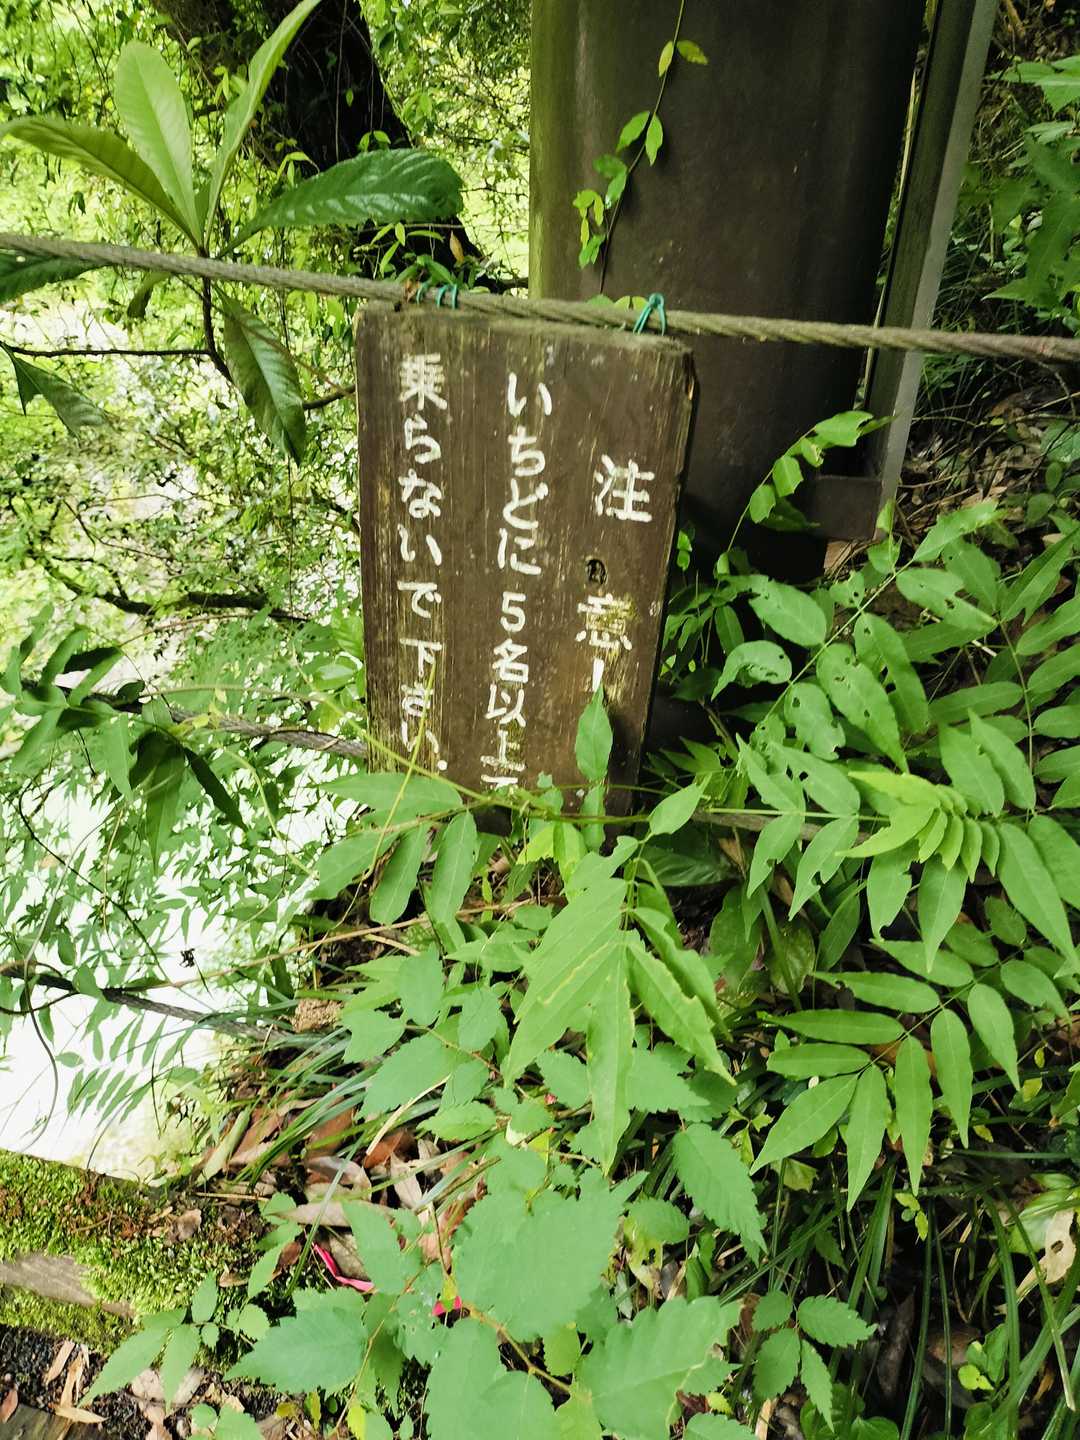 注意！
いちどに5名以上
乗らないで下さい.